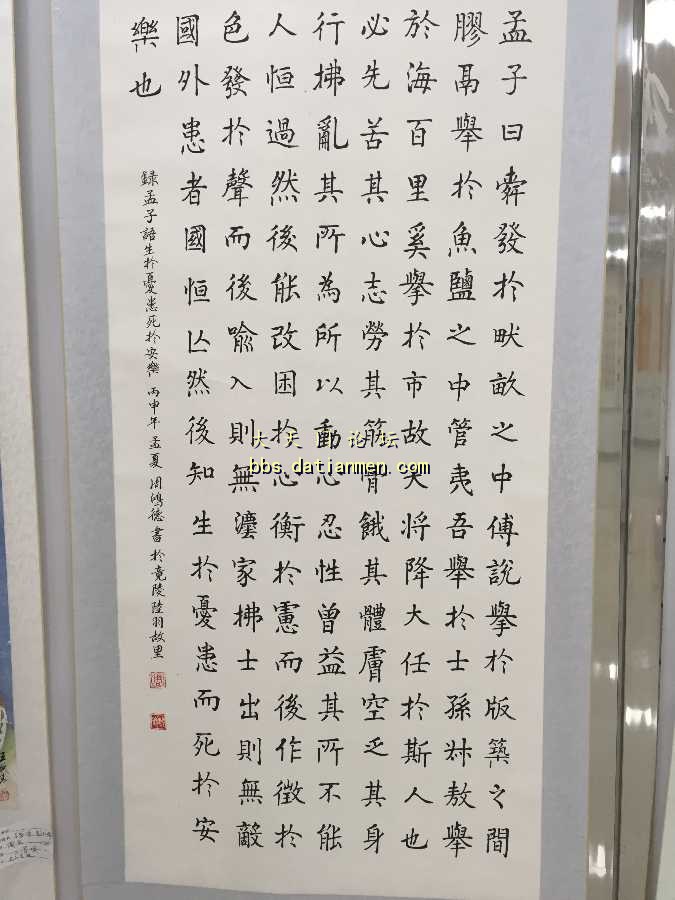 孟子曰舜發於畎畝之中傅說舉於版築之間
膠鬲舉於魚鹽之中管夷吾舉於士孫叔敖舉
於海百里奚舉於市故天將降大任於斯人也
必先苦其心志勞其筋骨餓其體膚空乏其身
行拂亂其所為所以動心忍性曾益其所不能
人恒過然後能改困於心衡於慮而後作徵於
色發於聲而後喻入則無灋家拂士出則無敵
國外患者國恒亡然後知生於憂患而死於安
樂也
録孟子語生於憂患死於安樂 丙申年孟夏周鴻德書於竟陵陸羽故里
大天门论坛
bbs.datianmen.com